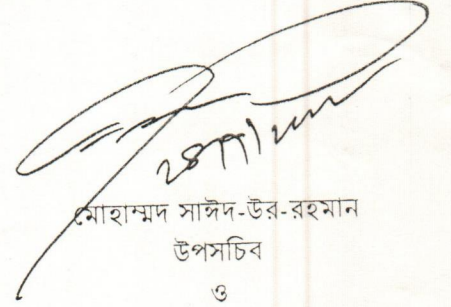 মোহাম্মদ সাঈদ-উর-রহমান
উপসচিব
ও